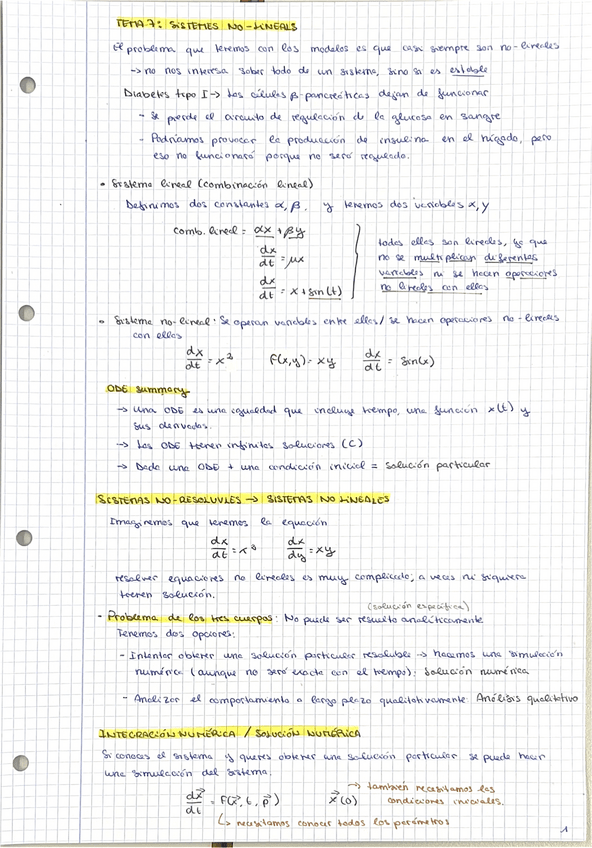 TEMA 7: SISTEMES NO-LINEALS
El problema que tenemos con los modelos es que casi siempre son no-lineales
→ no nos interesa saber todo de un sistema, sino si es estable
Diabetes tipo I → Las células β-pancreáticas dejan de funcionar
- Se pierde el circuito de regulación de la glucosa en sangre
- Podríamos provocar la producción de insulina en el hígado, pero
eso no funcionará porque no será regulado.
• Sistema lineal (combinación lineal)
Definimos dos constantes α, β, y tenemos dos variables x, y
comb. lineal = αx + βy
dx/dt = μx
dx/dt = x + sin(t)
todas ellas son lineales, ya que
no se multiplican diferentes
variables ni se hacen operaciones
no lineales con ellas
• Sistema no-lineal: Se operan variables entre ellas / se hacen operaciones no-lineales
con ellas
dx/dt = x³ F(x,y) = xy dx/dt = sin(x)
ODE summary
→ Una ODE es una igualdad que incluye tiempo, una función x(t) y
sus derivadas.
→ Las ODE tienen infinitas soluciones (C)
→ Dada una ODE + una condición inicial = solución particular
SISTEMAS NO-RESOLUVLES → SISTEMAS NO LINEALES
Imaginemos que tenemos la equación
dx/dt = x³ dx/dy = xy
resolver equaciones no lineales es muy complicado, a veces ni siquiera
tienen solución.
(solución específica)
- Problema de los tres cuerpos: No puede ser resuelto analíticamente
Tenemos dos opciones:
- Intentar obtener una solución particular resoluble → hacemos una simulación
numérica (aunque no será exacta con el tiempo): Solución numérica
- Analizar el comportamiento a largo plazo qualitativamente: Análisis qualitativo
INTEGRACIÓN NUMÉRICA / SOLUCIÓN NUMÉRICA
Si conoces el sistema y quieres obtener una solución particular se puede hacer
una simulación del sistema.
dx⃗/dt = F(x⃗, t, p⃗) x⃗(0)
→ también necesitamos las
condiciones iniciales.
↳ necesitamos conocer todos los parámetros
1